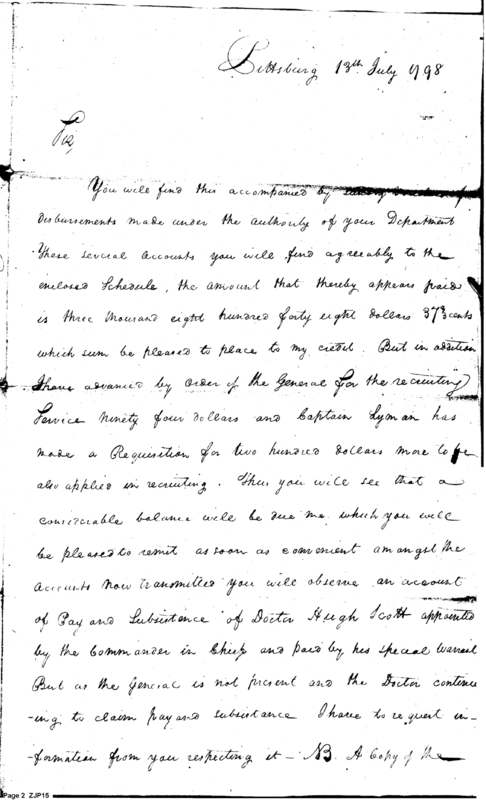 Pittsburg 13th July 1798
Sir,
You will find this accompanied by
disbursements made under the authority of your Department
These several accounts you will find agreeably to the
enclosed Schedule, the amount that thereby appears paid
is three thousand eight hundred forty eight dollars 37 3/4 cents
which sum be pleased to place to my credit. But in addition
I have advanced by order of the General for the recruiting
Service ninety four dollars and Captain Lyman has
made a Requisition for two hundred dollars more to be
also applied in recruiting. Thus you will see that a
considerable balance will be due me which you will
be pleased to remit as soon as convenient amongst the
accounts now transmitted you will observe an account
of Pay and Subsistence of Doctor Hugh Scott appointed
by the Commander in Chief and paid by his special warrant
But as the General is not present and the Doctor continue
-ing to claim pay and subsistance I have to request in-
-formation from you respecting it - NB. A Copy of the
Page 2 ZJP15